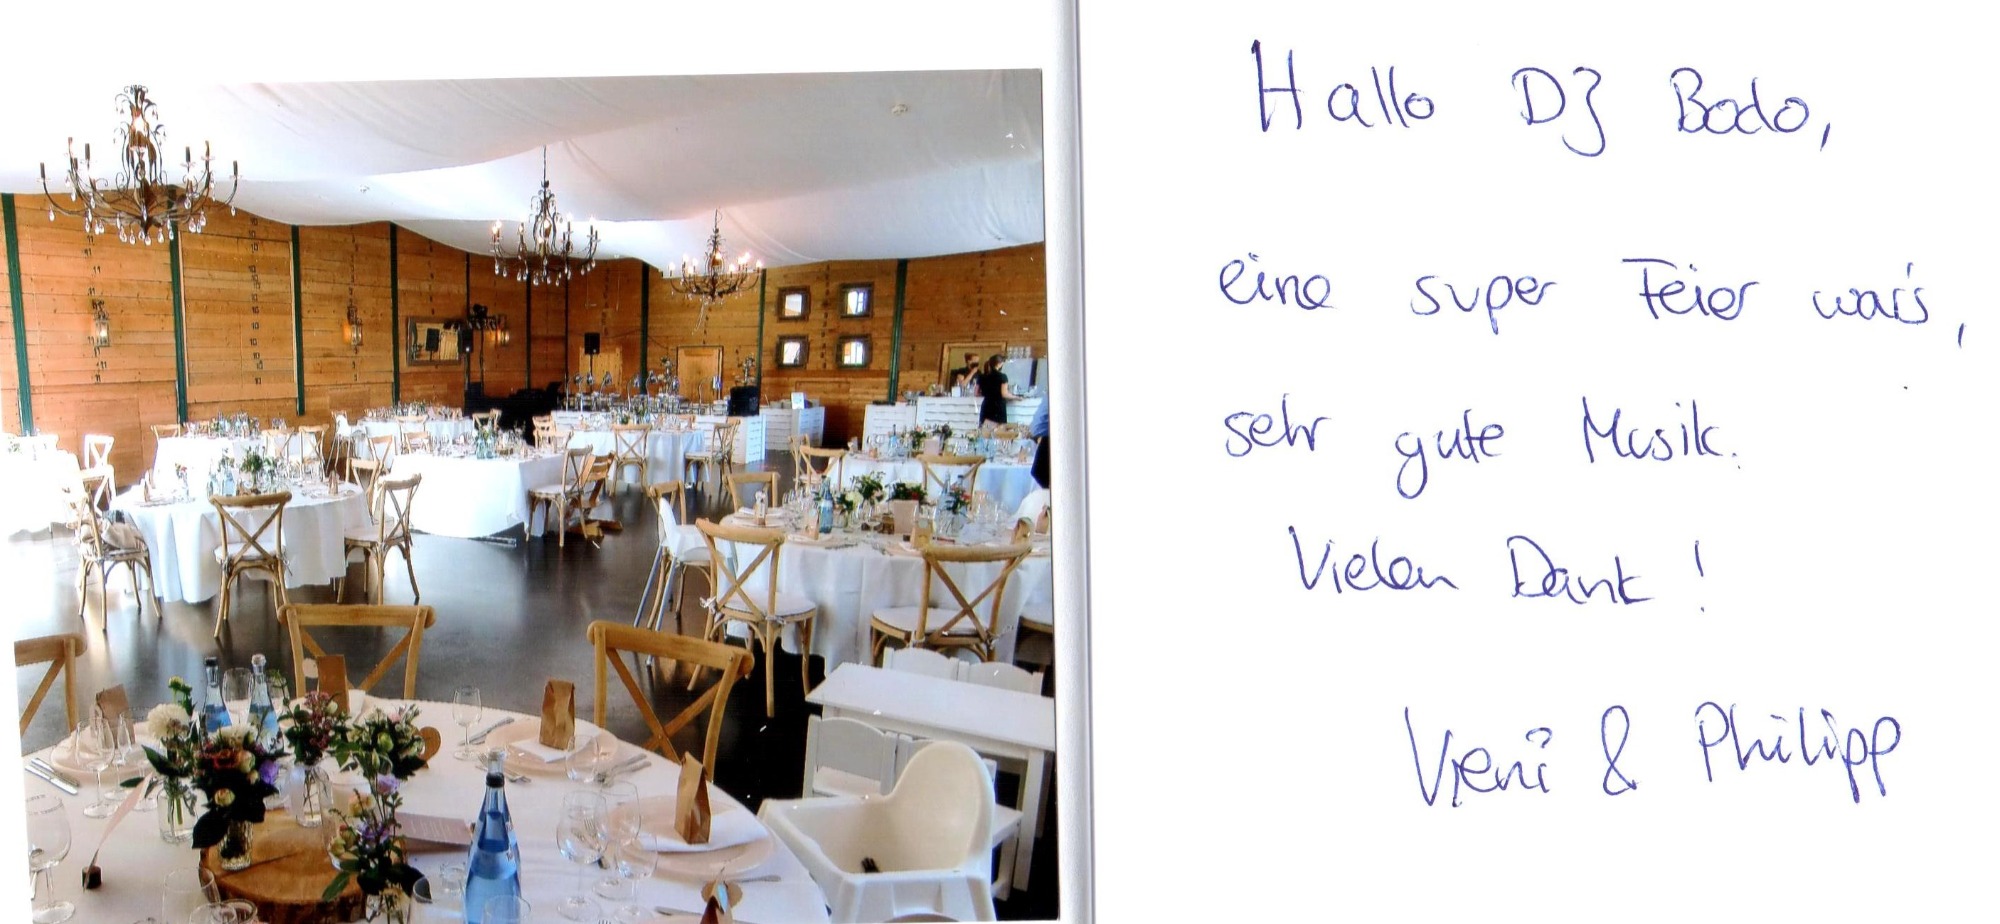 Hallo DJ Bodo,
eine super Feier war's,
sehr gute Musik.
Vielen Dank!
Vreni & Philipp